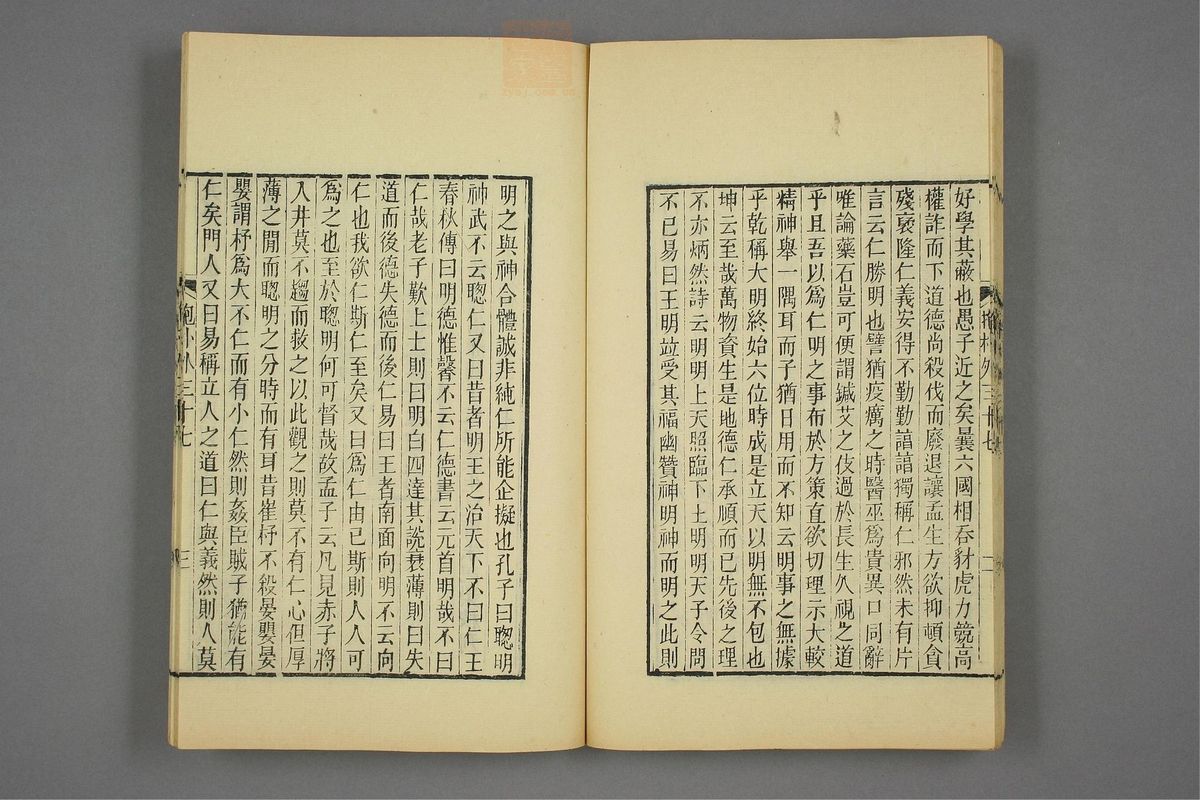 好學其蔽也愚子近之矣曩六國相吞豺虎力競高
權詐而下道德尚殺伐而廢退讓孟生方欲抑頓貪
殘褒隆仁義安得不勤勤諄諄獨稱仁邪然未有片
言云仁勝明也譬猶疫癘之時醫巫爲貴異口同辭
唯論藥石豈可便謂鍼艾之伎過於長生久視之道
乎且吾以爲仁明之事布於方策直欲切理示大較
精神舉一隅耳而子猶日用而不知云明事之無據
乎乾稱大明終始六位時成是立天以明無不包也
坤云至哉萬物資生是地德仁承順而已先後之理
不亦炳然詩云明明上天照臨下土明明天子令問
不已易曰王明竝受其福幽贊神明神而明之此則
抱朴外三十七
二
明之與神合體誠非純仁所能企擬也孔子曰聰明
神武不云聰仁又曰昔者明王之治天下不曰仁王
春秋傳曰明德惟馨不云仁德書云元首明哉不曰
仁哉老子歎上士則曰明白四達其說衰薄則曰失
道而後德失德而後仁易曰王者南面向明不云向
仁也我欲仁斯仁至矣又曰爲仁由己斯則人人可
爲之也至於聰明何可督哉故孟子云凡見赤子將
入井莫不趨而救之以此觀之則莫不有仁心但厚
薄之閒而聰明之分時而有耳昔崔杼不殺晏嬰晏
嬰謂杼爲大不仁而有小仁然則姦臣賊子猶能有
仁矣門人又曰易稱立人之道曰仁與義然則人莫
抱朴外三十七
三